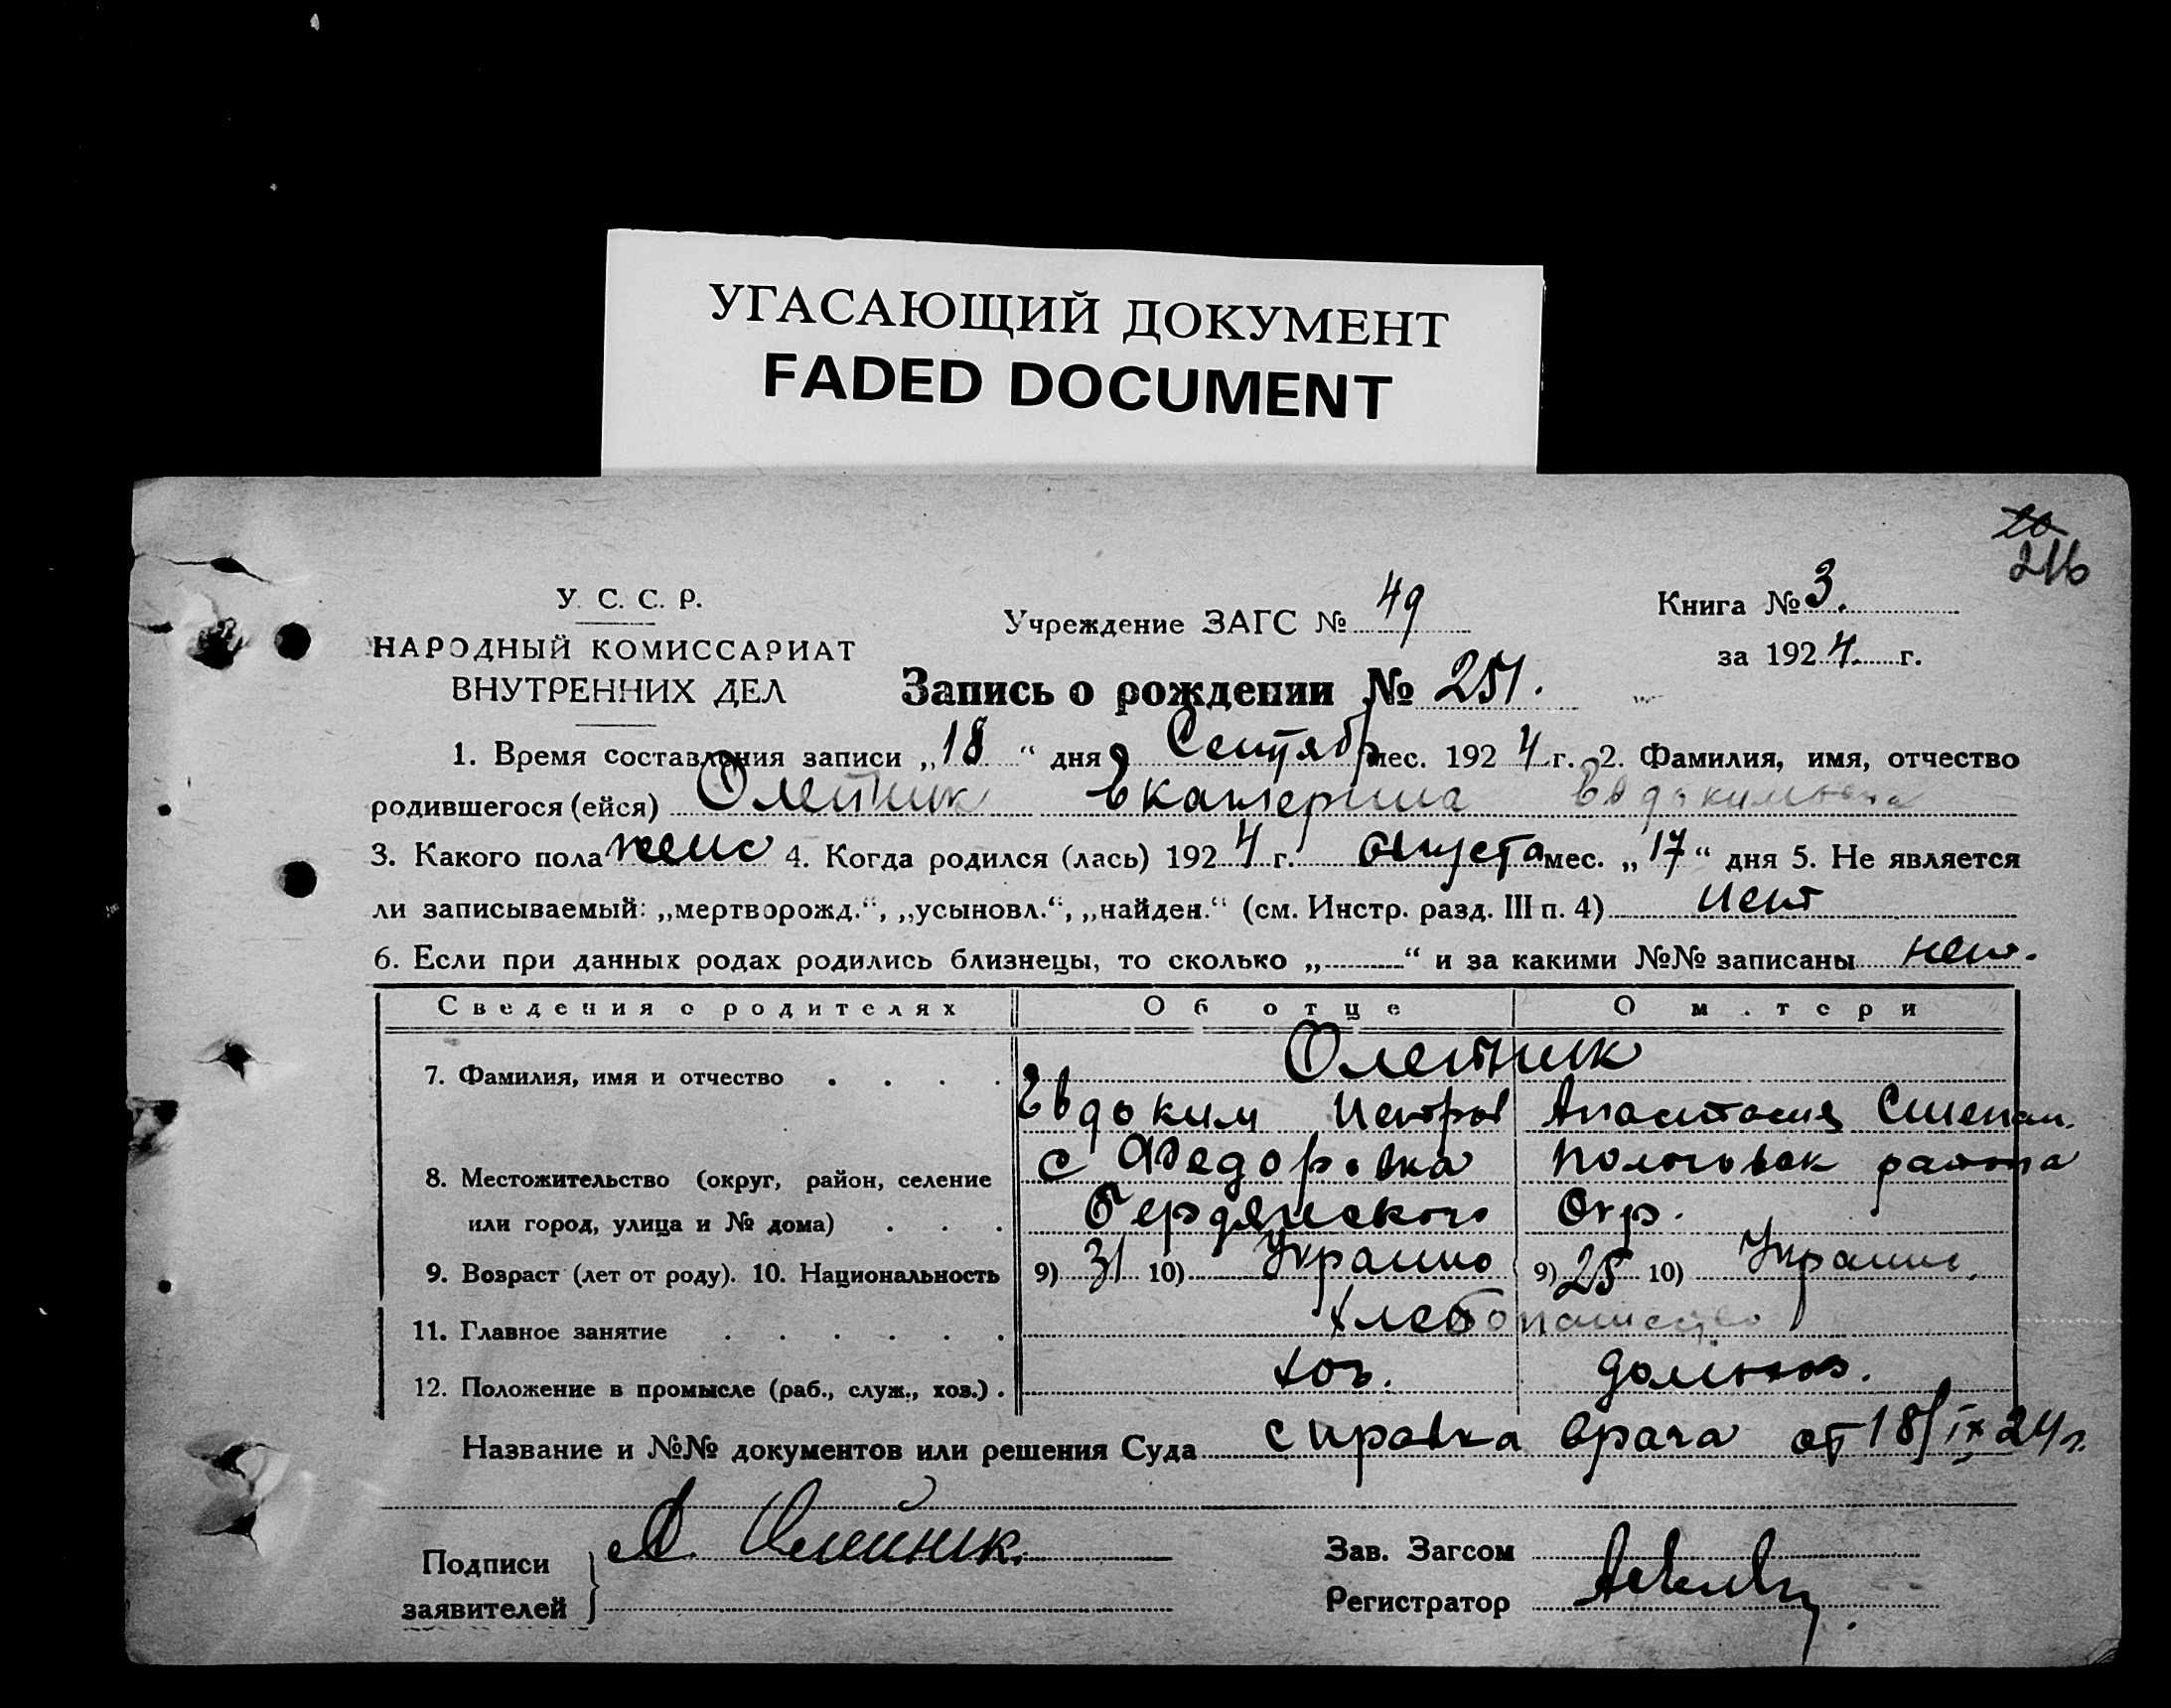 УГАСАЮЩИЙ ДОКУМЕНТ
FADED DOCUMENT
20
216
У. С. С. Р.
НАРОДНЫЙ КОМИССАРИАТ
ВНУТРЕННИХ ДЕЛ
Учреждение ЗАГС № 49
Книга № 3.
за 1924 г.
Запись о рождении № 251.
1. Время составления записи „18“ дня Сентябр мес. 1924 г. 2. Фамилия, имя, отчество
родившегося (ейся) Олейник Екатерина Евдокимовна
3. Какого пола женс 4. Когда родился (лась) 1924 г. августа мес. „17“ дня 5. Не является
ли записываемый: „мертворожд.“, „усыновл.“, „найден.“ (см. Инстр. разд. III п. 4) нет
6. Если при данных родах родились близнецы, то сколько „ “ и за какими №№ записаны нет.
Сведения о родителях Об отце О м.тери
7. Фамилия, имя и отчество Олейник
Евдоким Петров Анастасия Степан.
8. Местожительство (округ, район, селение с Федоровка Пологовск района
или город, улица и № дома) Бердянского Окр.
9. Возраст (лет от роду). 10. Национальность 9) 31 10) Украино 9) 25 10) Украин.
11. Главное занятие хлебопашество
12. Положение в промысле (раб., служ., хоз.) хоз. домохоз.
Название и №№ документов или решения Суда справка врача от 18/IX 24 г.
Подписи
заявителей
А. Олейник.
Зав. Загсом
Регистратор